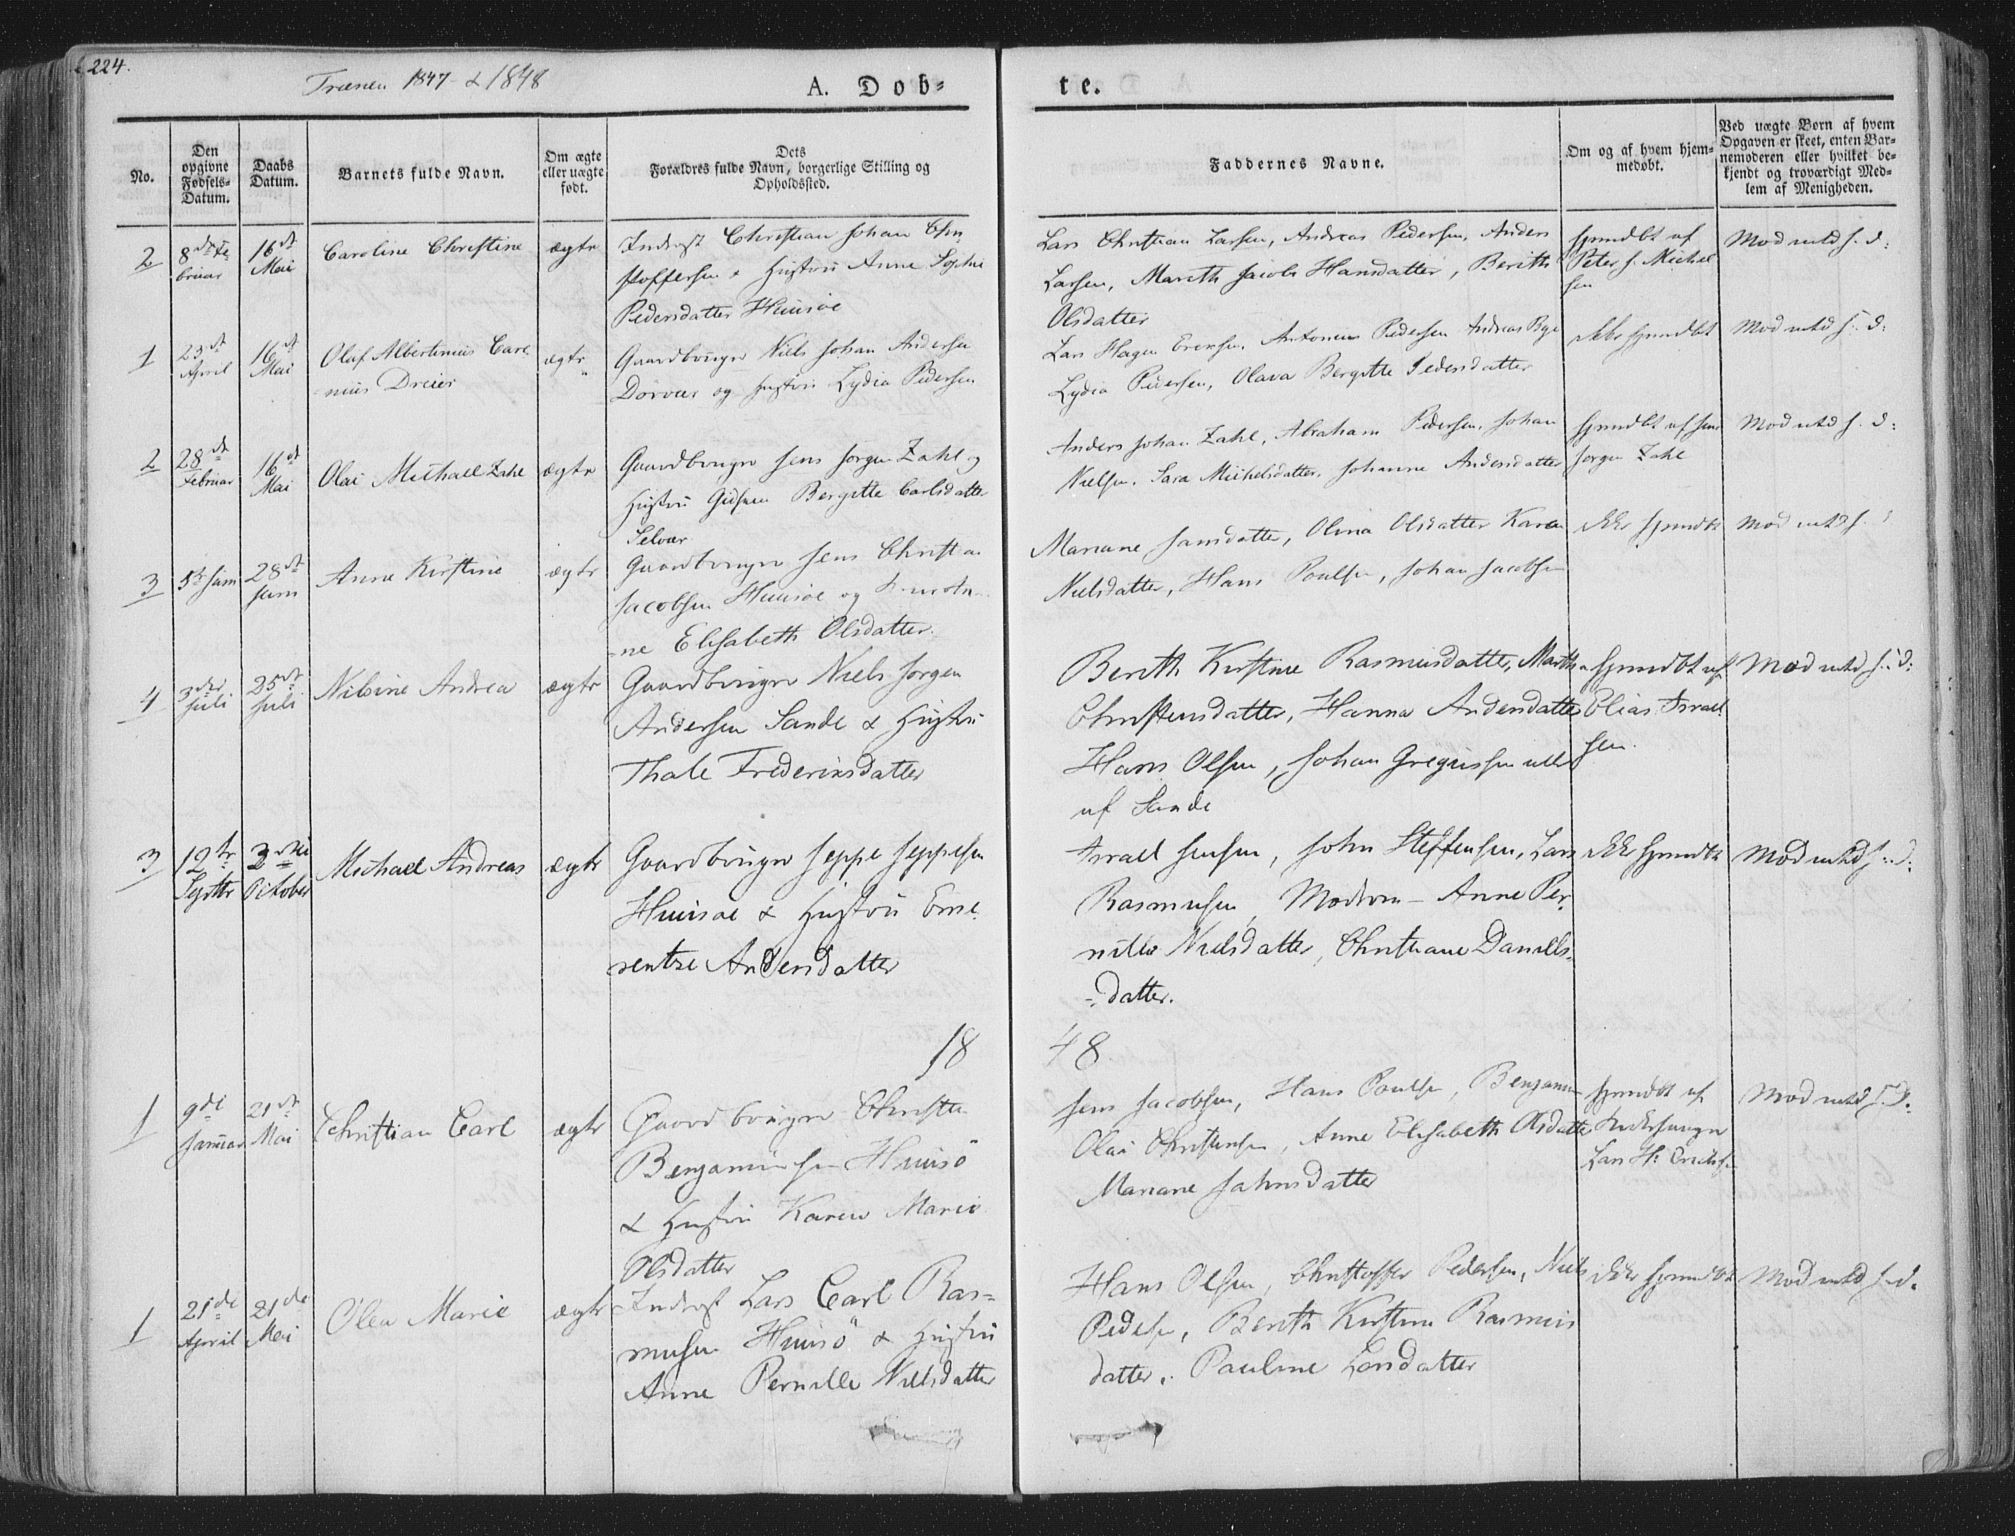 224.
Trænen 1847 & 1848
A. Dob-
te.
No.
Den
opgivne
Fødsels-
Datum.
Daabs
Datum.
Barnets fulde Navn.
Om ægte
eller uægte
født.
Dets
Forældres fulde Navn, borgerlige Stilling og
Opholdssted.
Faddernes Navne.
Om og af hvem hjem-
medøbt.
Ved uægte Børn af hvem
Opgaven er skeet, enten Bar-
nemoderen eller hvilket be-
kjendt og troværdigt Med-
lem af Menigheden.
2
8de Fe
bruar
16de
Mai
Caroline Christine
ægte
Inderst Christian Johan Chri
stoffersen & Hustru Anne Sophie
Pedersdatter Huusøe
Lars Christian Larsen, Andreas Pedersen, Anders
Larsen, Mareth Jacobs Hansdatter, Berith
Olsdatter
hjemdbt af
Peter J. Michel
sen
Mod
1
23de
April
16de
Mai
Olaf Albertinius Care
nius Dreier
ægte
Gaardbruger Niels Johan Andersen
Dørvær og Hustru Lydia Pedersen
Lars Hagen Erensen, Antonius Pedersen Andreas Bye
Lydia Pedersen, Olava Bergitte Pedersdatter
ikke hjemdbt
Mod
2
28de
Februar
16de
Mai
Olai Michael Zahl
ægte
Gaardbruger Jens Jørgen Zahl og
Hustru Bergitte Carlsdatter
Selvær
Anders Johan Zahl, Abraham Pedersen, Johan
Nielsen, Sara Michelsdatter, Johanne Andersdatter
hjemdbt af Jens
Jørgen Zahl
Mod
3
5te Juni
28de
Juni
Anne Kirstine
ægte
Gaardbruger Jens Christian
Jacobsen Huusøe og
ne Elisabeth Olsdatter
Mariane Jansdatter, Olina Olsdatter Karen
Nielsdatter, Hans Poulsen, Johan Jacobsen
ikke hjemdbt
Mod
4
3die
Juli
25de
Juli
Nilsine Andrea
ægte
Gaardbruger Niels Jørgen
Andersen Sande & Hustru
Thale Frederiksdatter
Berith Kirstine Rasmusdatter, Marth
Christensdatter, Hanna Andersdatter
Hans Olsen, Johan Gregussen alle
af Sande
hjemdbt af
Elias Israel
sen.
Mod
3
12te
Septbr
3die
October
Michael Andreas
ægte
Gaardbruger Jeppe Jeppesen
Huusøe & Hustru Eme
rentze Andersdatter
Israel Jensen, John Steffensen, Lars
Rasmusen, Modren - Anne Per
nille Nielsdatter, Christiane Daniels-
-datter.
ikke hjemdbt
Mod
18
48
1
9de
Januar
21de
Mai
Christian Carl
ægte
Gaardbruger Christen
Benjaminsen Huusø
& Hustru Karen Marie
Olsdatter
Jens Jacobsen, Hans Poulsen, Benjamin
Olai Christensen, Anne Elisabeth Olsdatter
Mariane Jahnsdatter
hjemdbt af
Kirkesanger
Lars Hs Eriksen
Mod
1
21de
April
21de
Mai
Olea Marie
ægte
Inderst Lars Carl Ras-
musen Huusø & Hustru
Anne Pernille Nielsdatter
Hans Olsen, Christoffer Pedersen, Niels
Pedersen, Berith Kirstine Rasmus
datter, Pauline Larsdatter
ikke hjemdbt
Mod